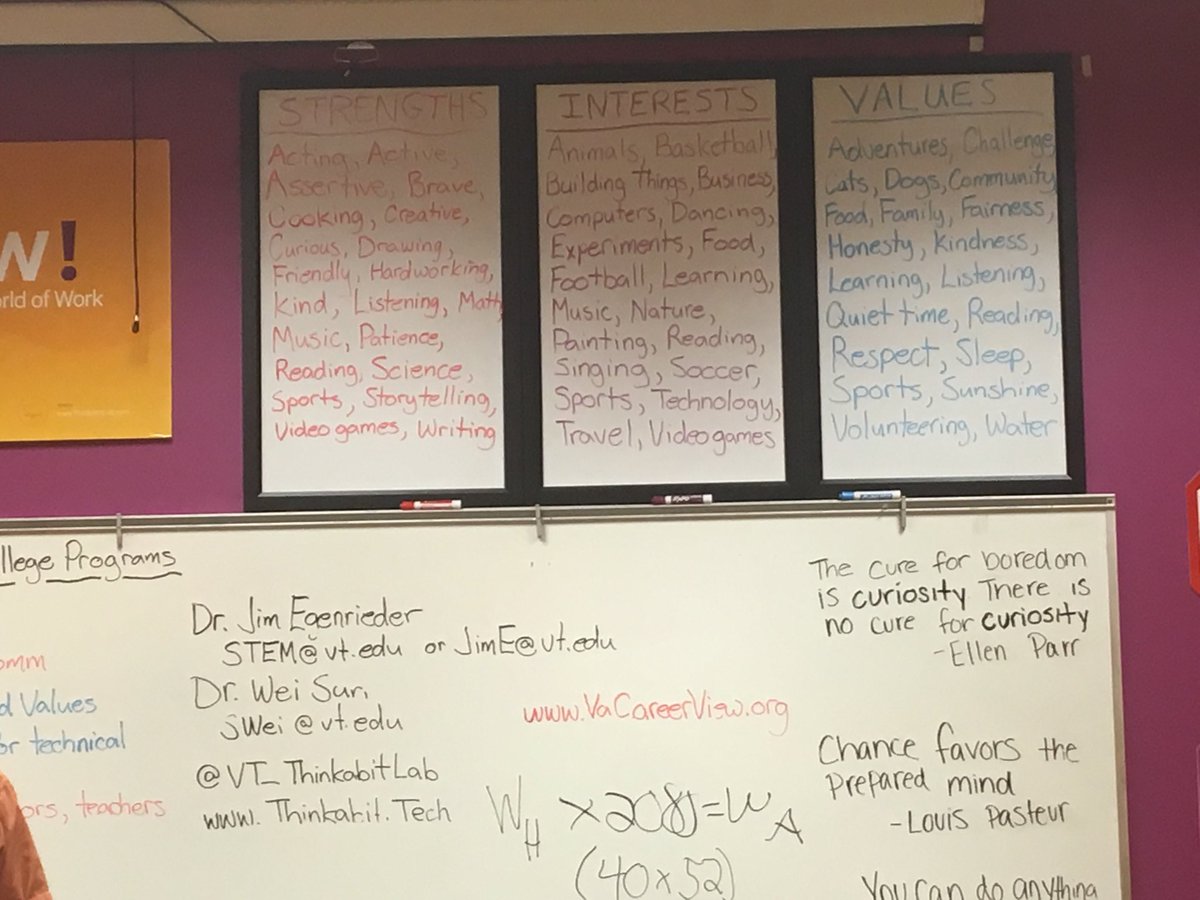 W!
rld of Work
STRENGTHS
Acting, Active,
Assertive, Brave,
Cooking, Creative,
Curious, Drawing,
Friendly, Hardworking,
Kind, Listening, Math,
Music, Patience,
Reading, Science,
Sports, Storytelling,
Videogames, Writing
INTERESTS
Animals, Basketball,
Building Things, Business,
Computers, Dancing,
Experiments, Food,
Football, Learning,
Music, Nature,
Painting, Reading,
Singing, Soccer,
Sports, Technology,
Travel, Videogames
VALUES
Adventures, Challenge,
Cats, Dogs, Community,
Food, Family, Fairness,
Honesty, Kindness,
Learning, Listening,
Quiet time, Reading,
Respect, Sleep,
Sports, Sunshine,
Volunteering, Water
llege Programs
omm
d Values
or technical
ors, teachers
Dr. Jim Egenrieder
STEM@vt.edu or JimE@vt.edu
Dr. Wei Sun,
sWei@vt.edu
@VT_ThinkabitLab
www.Thinkabit.Tech
www.VaCareerView.org
W_H × 2080 = W_A
(40×52)
The cure for boredom
is curiosity There is
no cure for curiosity
-Ellen Parr
Chance favors the
Prepared mind
-Louis Pasteur
You can do anything